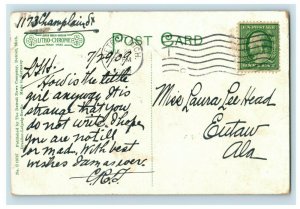 1173 Champlain St
POST CARD
LITHO-CHROME
7/29/09.
How is the little
girl anyway. It is
strange that you
do not write. I hope
you are not ill
or mad. With best
wishes I am as ever.
Miss Laura Lee Head
Eutaw
Ala